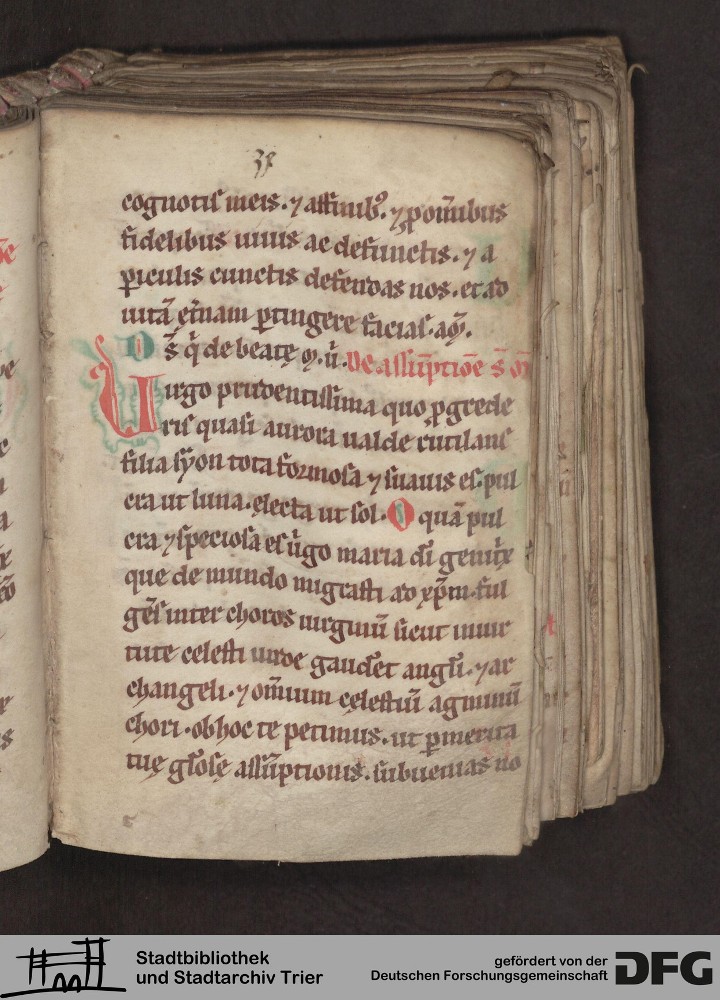 38
cognotis meis · ⁊ affinib⁹ · ⁊ ꝓ om̄ibus
fidelibus uiuis ac defunctis · ⁊ a
ꝑiculis cunctis defendas nos · et ad
uitā et̄nam ꝑtingere facias · am̄ .
D s̄ q̄ de beatę m̄ · ū · De assūptiōe s̄
Uirgo prudentissima quo ꝓgrede
ris quasi aurora ualde rutilans
filia syon tota formosa ⁊ suauis es · pul
cra ut luna · electa ut sol · O quā pul
cra ⁊ speciosa es ū̓go maria dī genit̓x
que de mundo migrasti ad xp̄m · ful
gēs inter choros uirginū sicut in uir
tute celesti unde gaudēt angłi · ⁊ ar
changeli · ⁊ om̄ium cęlestiū agminū
chori · ob hoc te petimus · ut ꝑ merita
tuę głosę assūptionis · subuenias no
Stadtbibliothek
und Stadtarchiv Trier
gefördert von der
Deutschen Forschungsgemeinschaft
DFG